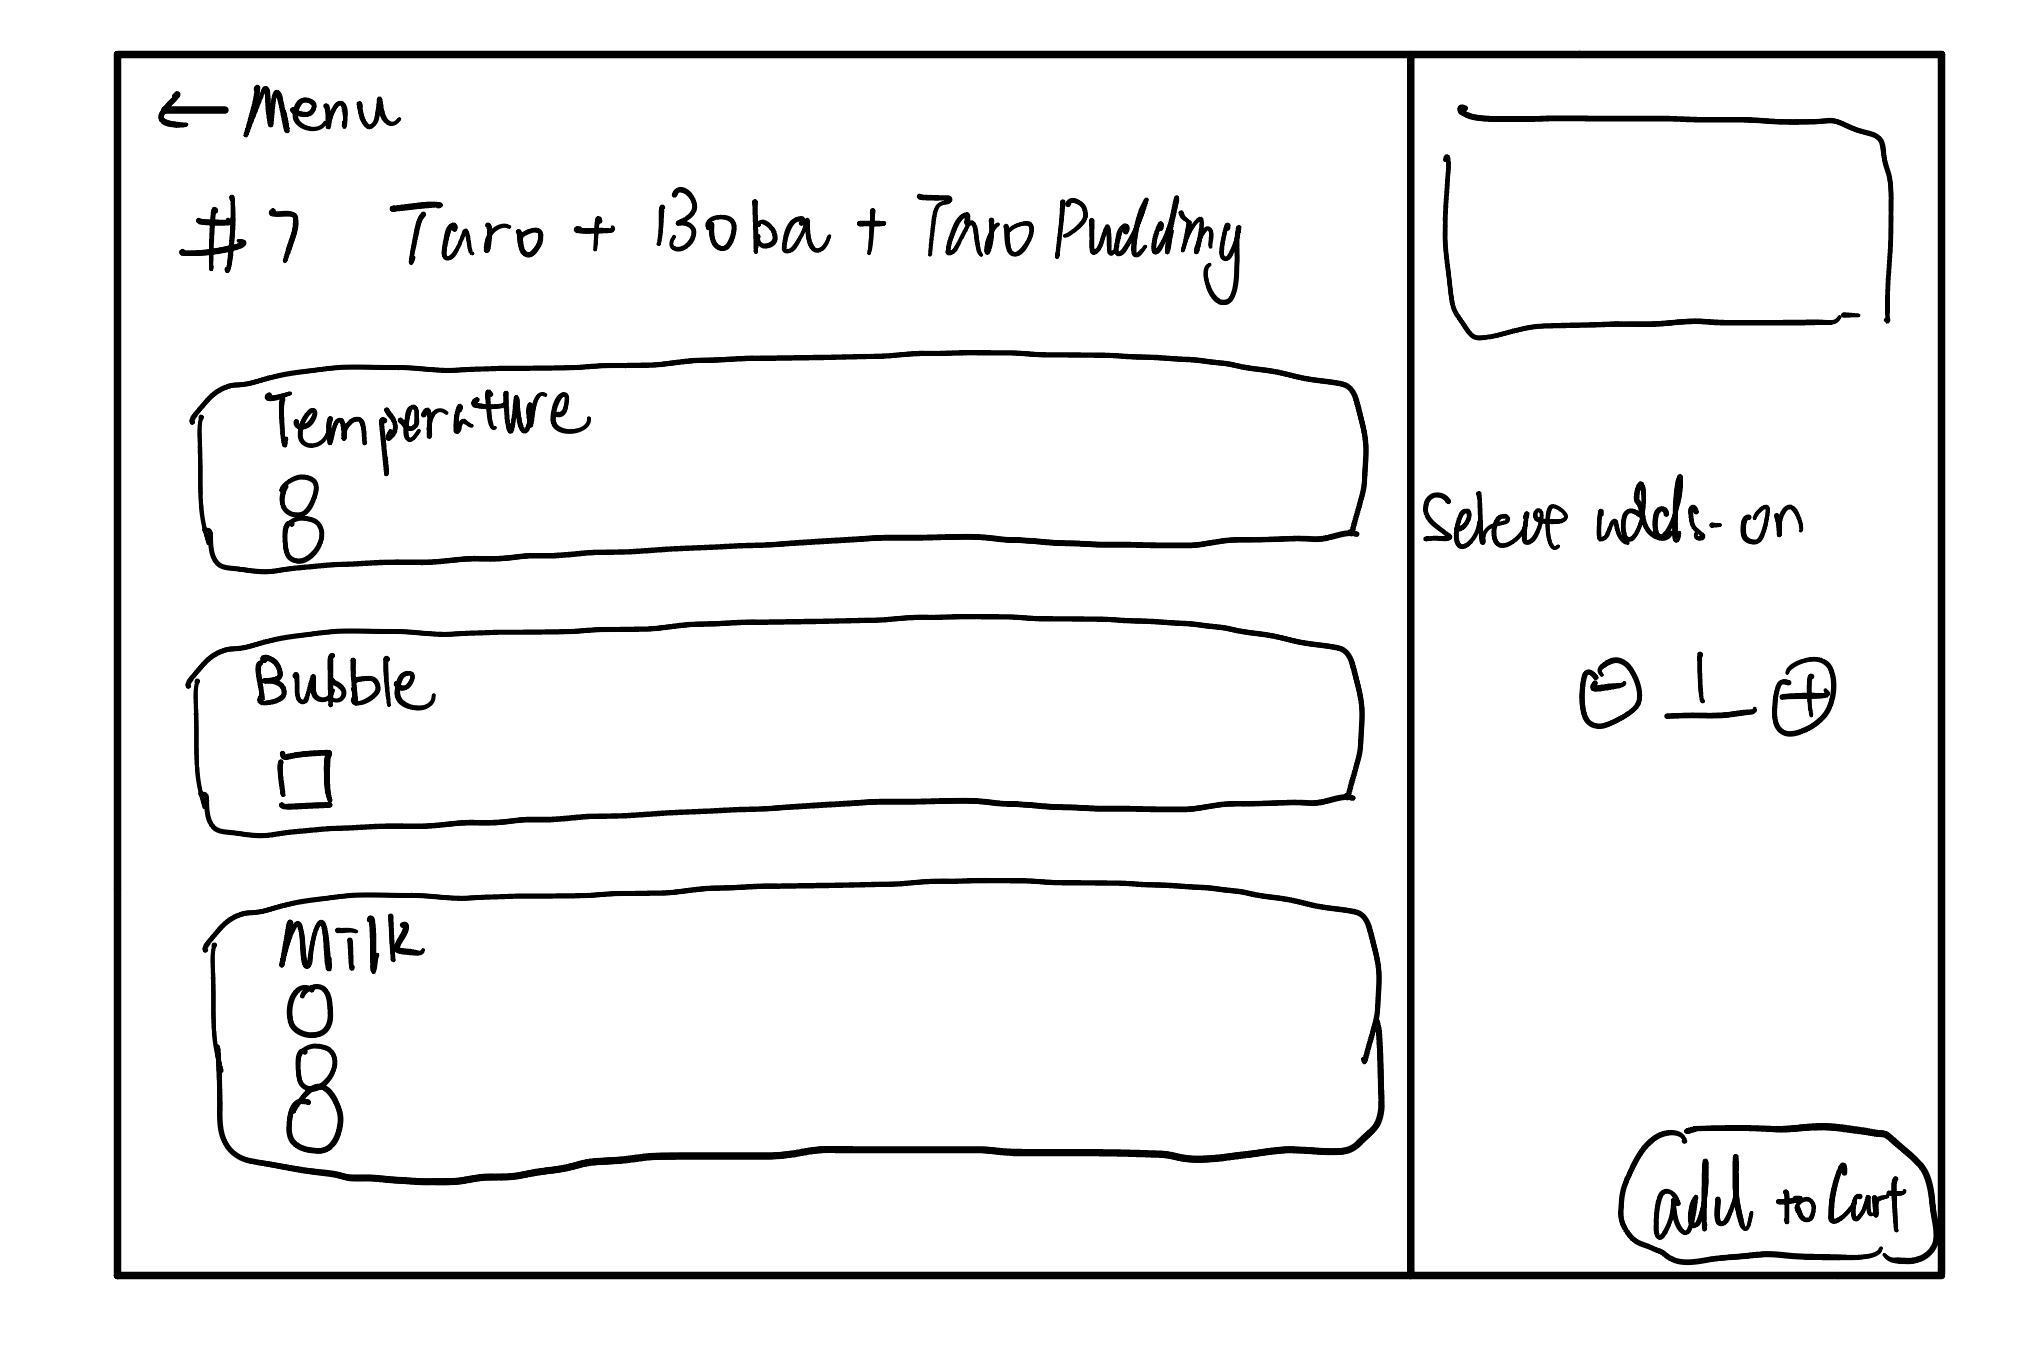 ← Menu
#7 Taro + Boba + Taro Pudding
Temperature
Bubble
Milk
adds-on
- 1 +
add to Cart